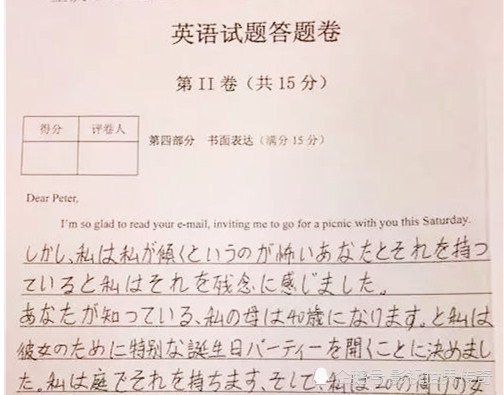 英语试题答题卷
第 II 卷（共 15 分）
得分 评卷人
第四部分 书面表达（满分 15 分）
Dear Peter,
I'm so glad to read your e-mail, inviting me to go for a picnic with you this Saturday.
しかし、私は私が傾くというのが怖いあなたとそれを持っ
ていると私はそれを残念に感じました。
あなたが知っている、私の母は40歳になります。と私は
彼女のために特別な誕生日パーティーを開くことに決めまし
た。私は庭でそれを持ちます、そして、私は20の掛けの女